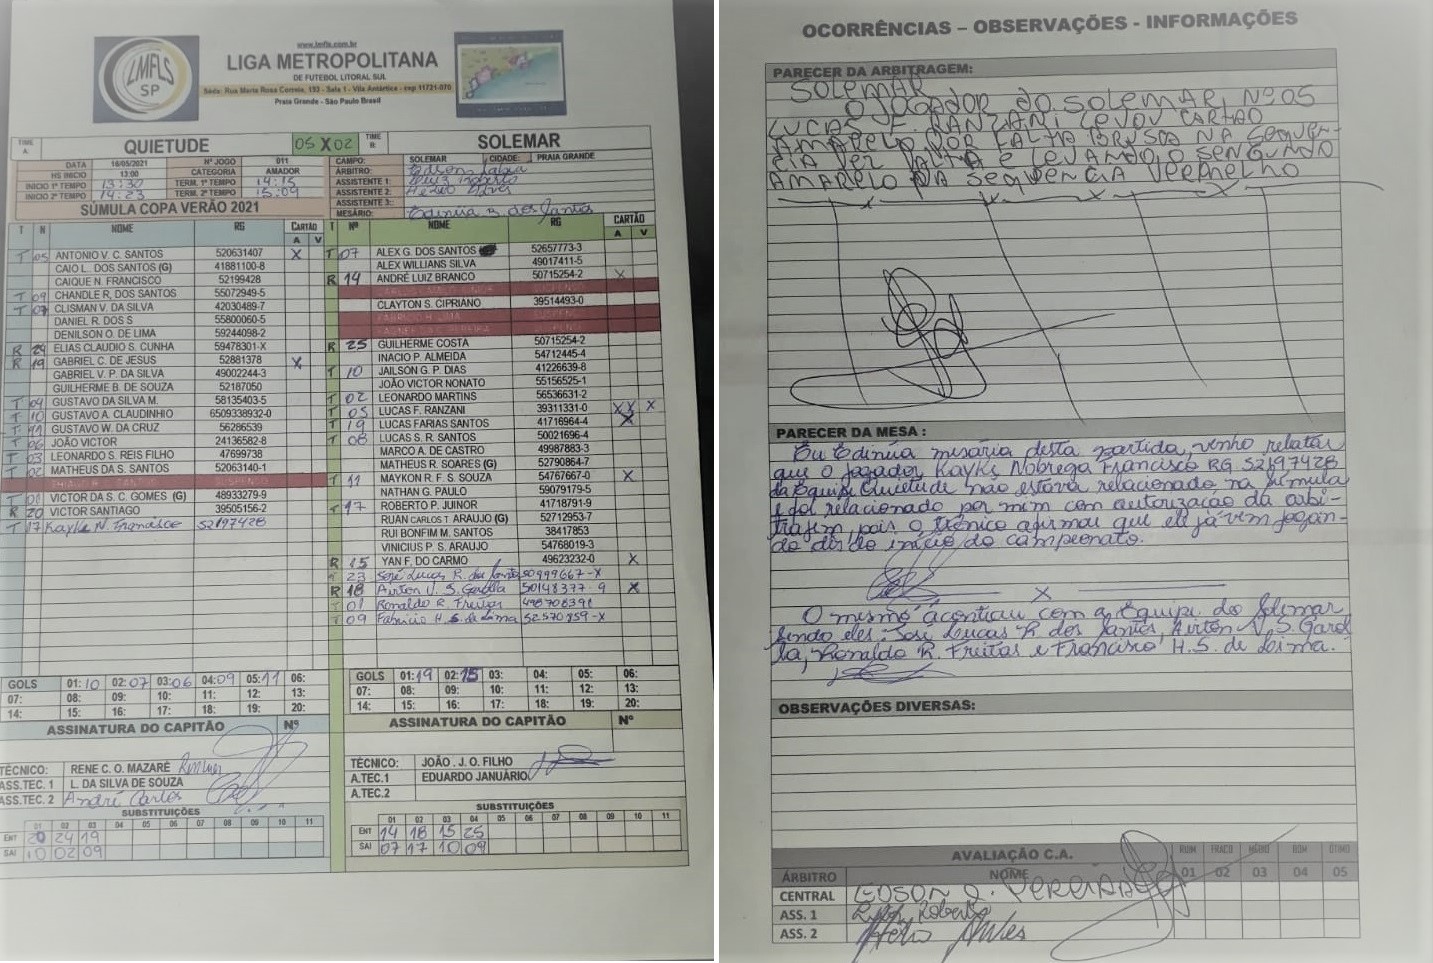 www.lmfls.com.br
LMFLS
SP
LIGA METROPOLITANA
DE FUTEBOL LITORAL SUL
Séde: Rua Maria Rosa Correia, 193 - Sala 1 - Vila Antártica - cep 11721-070
Praia Grande - São Paulo Brasil
TIME A: QUIETUDE 05 X 02 TIME B: SOLEMAR
DATA 16/05/2021 Nº JOGO 011 CAMPO: SOLEMAR CIDADE: PRAIA GRANDE
HS INICIO 13:00 CATEGORIA AMADOR ÁRBITRO: Edson
INICIO 1º TEMPO 13:30 TERM. 1º TEMPO 14:15 ASSISTENTE 1: Luiz Roberto
INICIO 2º TEMPO 14:23 TERM. 2º TEMPO 15:09 ASSISTENTE 2: Helio Alves
ASSISTENTE 3:
SÚMULA COPA VERÃO 2021 MESÁRIO: Edinúa B dos Santos
T N NOME RG CARTÃO A V
T 05 ANTONIO V. C. SANTOS 520631407 X
CAIO L. DOS SANTOS (G) 41881100-8
CAIQUE N. FRANCISCO 52199428
T 09 CHANDLE R. DOS SANTOS 55072949-5
T 07 CLISMAN V. DA SILVA 42030489-7
DANIEL R. DOS S 55800060-5
DENILSON O. DE LIMA 59244098-2
R 24 ELIAS CLAUDIO S. CUNHA 59478301-X
R 19 GABRIEL C. DE JESUS 52881378 X
GABRIEL V. P. DA SILVA 49002244-3
GUILHERME B. DE SOUZA 52187050
T 04 GUSTAVO DA SILVA M. 58135403-5
T 10 GUSTAVO A. CLAUDINHO 6509338932-0
T 11 GUSTAVO W. DA CRUZ 56286539
T 06 JOÃO VICTOR 24136582-8
T 03 LEONARDO S. REIS FILHO 47699738
T 02 MATHEUS DA S. SANTOS 52063140-1
SUSPENSO
T 01 VICTOR DA S. C. GOMES (G) 48933279-9
R 20 VICTOR SANTIAGO 39505156-2
T 17 Kayke N. Francisco 52197428
T Nº NOME RG CARTÃO A V
T 07 ALEX G. DOS SANTOS 52657773-3
ALEX WILLIANS SILVA 49017411-5
R 14 ANDRÉ LUIZ BRANCO 50715254-2 X
SUSPENSO
CLAYTON S. CIPRIANO 39514493-0
FABRICIO H. LIMA SUSPENSO
SUSPENSO
R 25 GUILHERME COSTA 50715254-2
INACIO P. ALMEIDA 54712445-4
T 10 JAILSON G. P. DIAS 41226639-8
JOÃO VICTOR NONATO 55156525-1
T 02 LEONARDO MARTINS 56536631-2
T 05 LUCAS F. RANZANI 39311331-0 X X X
T 19 LUCAS FARIAS SANTOS 41716964-4 X
T 08 LUCAS S. R. SANTOS 50021696-4
MARCO A. DE CASTRO 49987883-3
MATHEUS R. SOARES (G) 52790864-7
T 11 MAYKON R. F. S. SOUZA 54767667-0 X
NATHAN G. PAULO 59079179-5
T 17 ROBERTO P. JUINOR 41718791-9
RUAN CARLOS T ARAUJO (G) 52712953-7
RUI BONFIM M. SANTOS 38417853
VINICIUS P. S. ARAUJO 54768019-3
R 15 YAN F. DO CARMO 49623232-0 X
T 23 José Lucas R. dos Santos 50999667-X
R 18 Airton V. S. Garolla 50148377-9 X
T 01 Ronaldo R. Freitas
T 09 Fabricio H. S. de Lima 52570859-X
GOLS 01: 10 02: 07 03: 06 04: 09 05: 11 06:
07: 08: 09: 10: 11: 12: 13:
14: 15: 16: 17: 18: 19: 20:
ASSINATURA DO CAPITÃO Nº
TÉCNICO: RENE C. O. MAZARÉ
ASS.TEC. 1 L. DA SILVA DE SOUZA
ASS.TEC. 2 André Carlos
SUBSTITUIÇÕES
01 02 03 04 05 06 07 08 09 10 11
ENT 20 24 19
SAI 10 02 09
GOLS 01: 19 02: 15 03: 04: 05: 06:
07: 08: 09: 10: 11: 12: 13:
14: 15: 16: 17: 18: 19: 20:
ASSINATURA DO CAPITÃO Nº
TÉCNICO: JOÃO . J. O. FILHO
A.TEC.1 EDUARDO JANUÁRIO
A.TEC.2
SUBSTITUIÇÕES
01 02 03 04 05 06 07 08 09 10 11
ENT 14 18 15 25
SAI 07 17 10 09
OCORRÊNCIAS – OBSERVAÇÕES - INFORMAÇÕES
PARECER DA ARBITRAGEM:
SOLEMAR
O JOGADOR do SOLEMAR, Nº 05
LUCAS F. RANZANI LEVOU CARTÃO
AMARELO POR FALTA BRUSCA NA SEQUEN-
CIA FEZ FALTA E LEVANDO O SENGUNDO
AMARELO NA SEQUENCIA VERMELHO
PARECER DA MESA :
Eu Edinúa mesária desta partida, venho relatar
que o jogador Kayke Nobrega Francisco RG 52197428
da Equipe Quietude não estava relacionado na súmula
e foi relacionado por mim com autorização da arbi-
tragem, pois o técnico afirmou que ele já vem jogan-
do dis do início do campeonato.
X
O mesmo aconticiu com a Equipe do Solimar
sendo eles: José Lucas R. dos Santos, Airton V. S. Garol
la, Ronaldo R. Freitas e Francisco H.S. de Loima.
OBSERVAÇÕES DIVERSAS:
AVALIAÇÃO C.A. RUIM FRACO MÉDIO BOM ÓTIMO
ÁRBITRO NOME 01 02 03 04 05
CENTRAL EDSON
ASS. 1 Luiz Roberto
ASS. 2 Hélio Alves